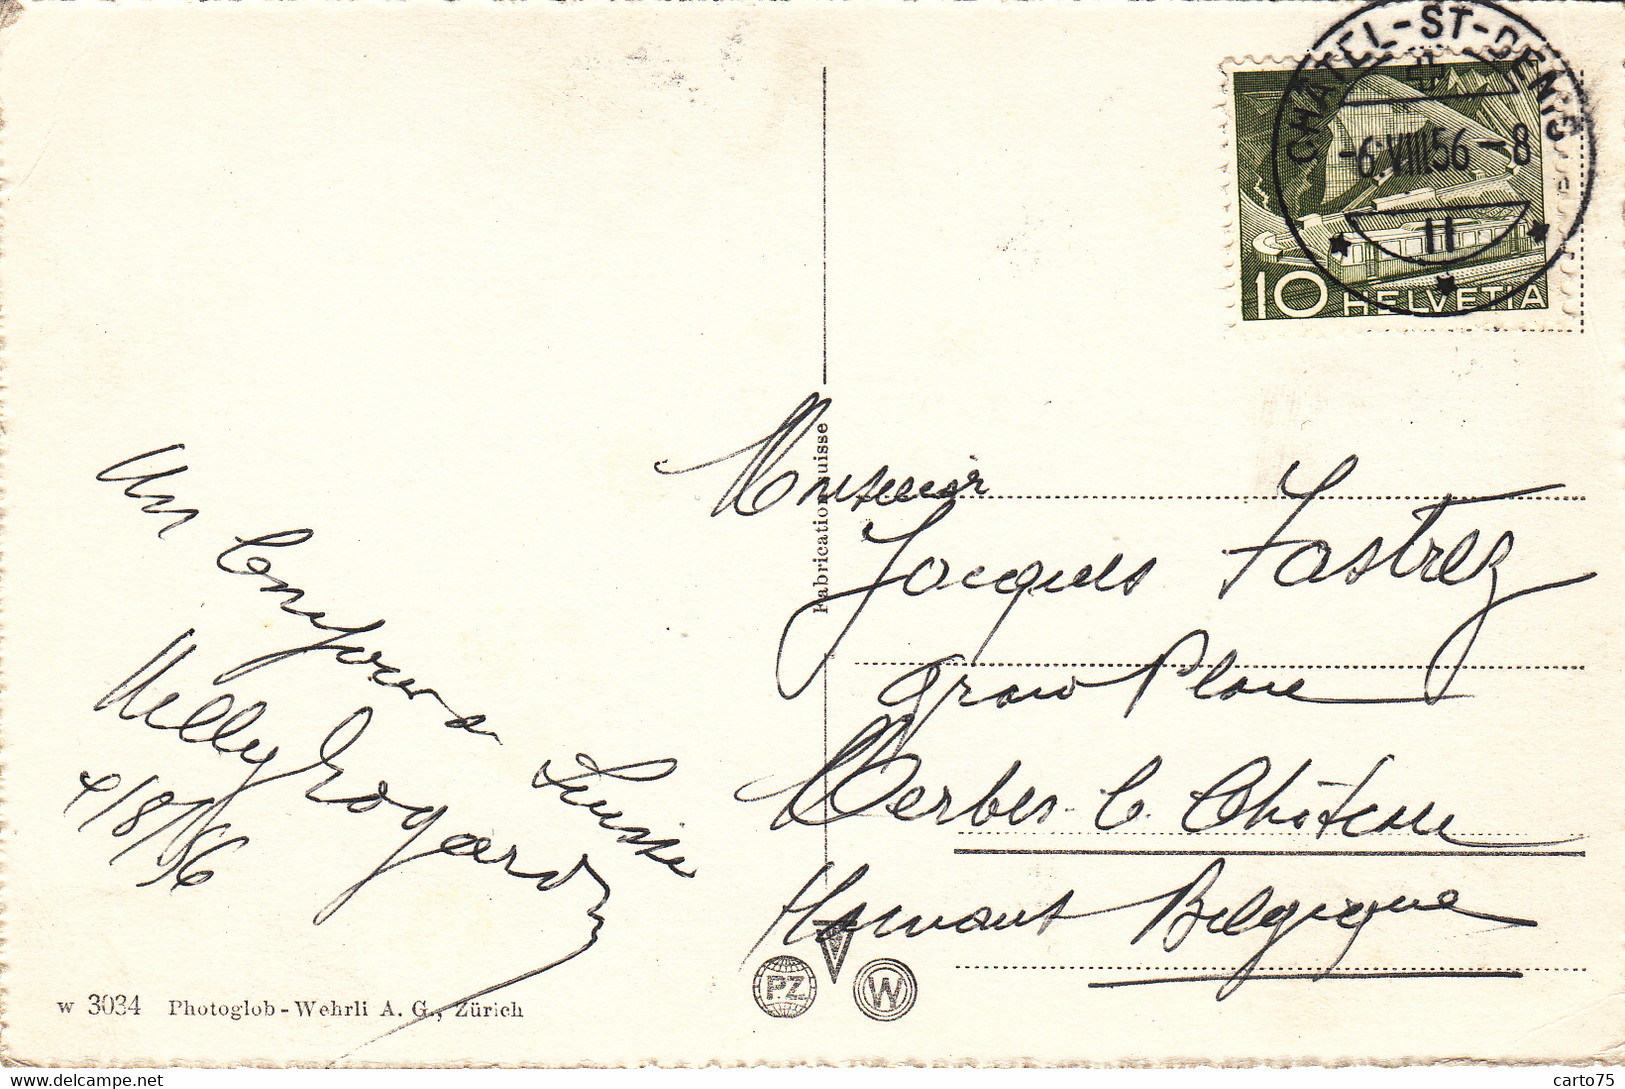 CHÂTEL-ST-DENIS
-6.VIII.56-8
11
10 HELVETIA
Fabrication suisse
Un bonjour de
Suisse
Nelly
4/8/56
Monsieur
Jacques Fastrez
Grand Place
Merbes le Château
Hainaut Belgique
P.Z. W
w 3034 Photoglob-Wehrli A. G., Zürich
carto75